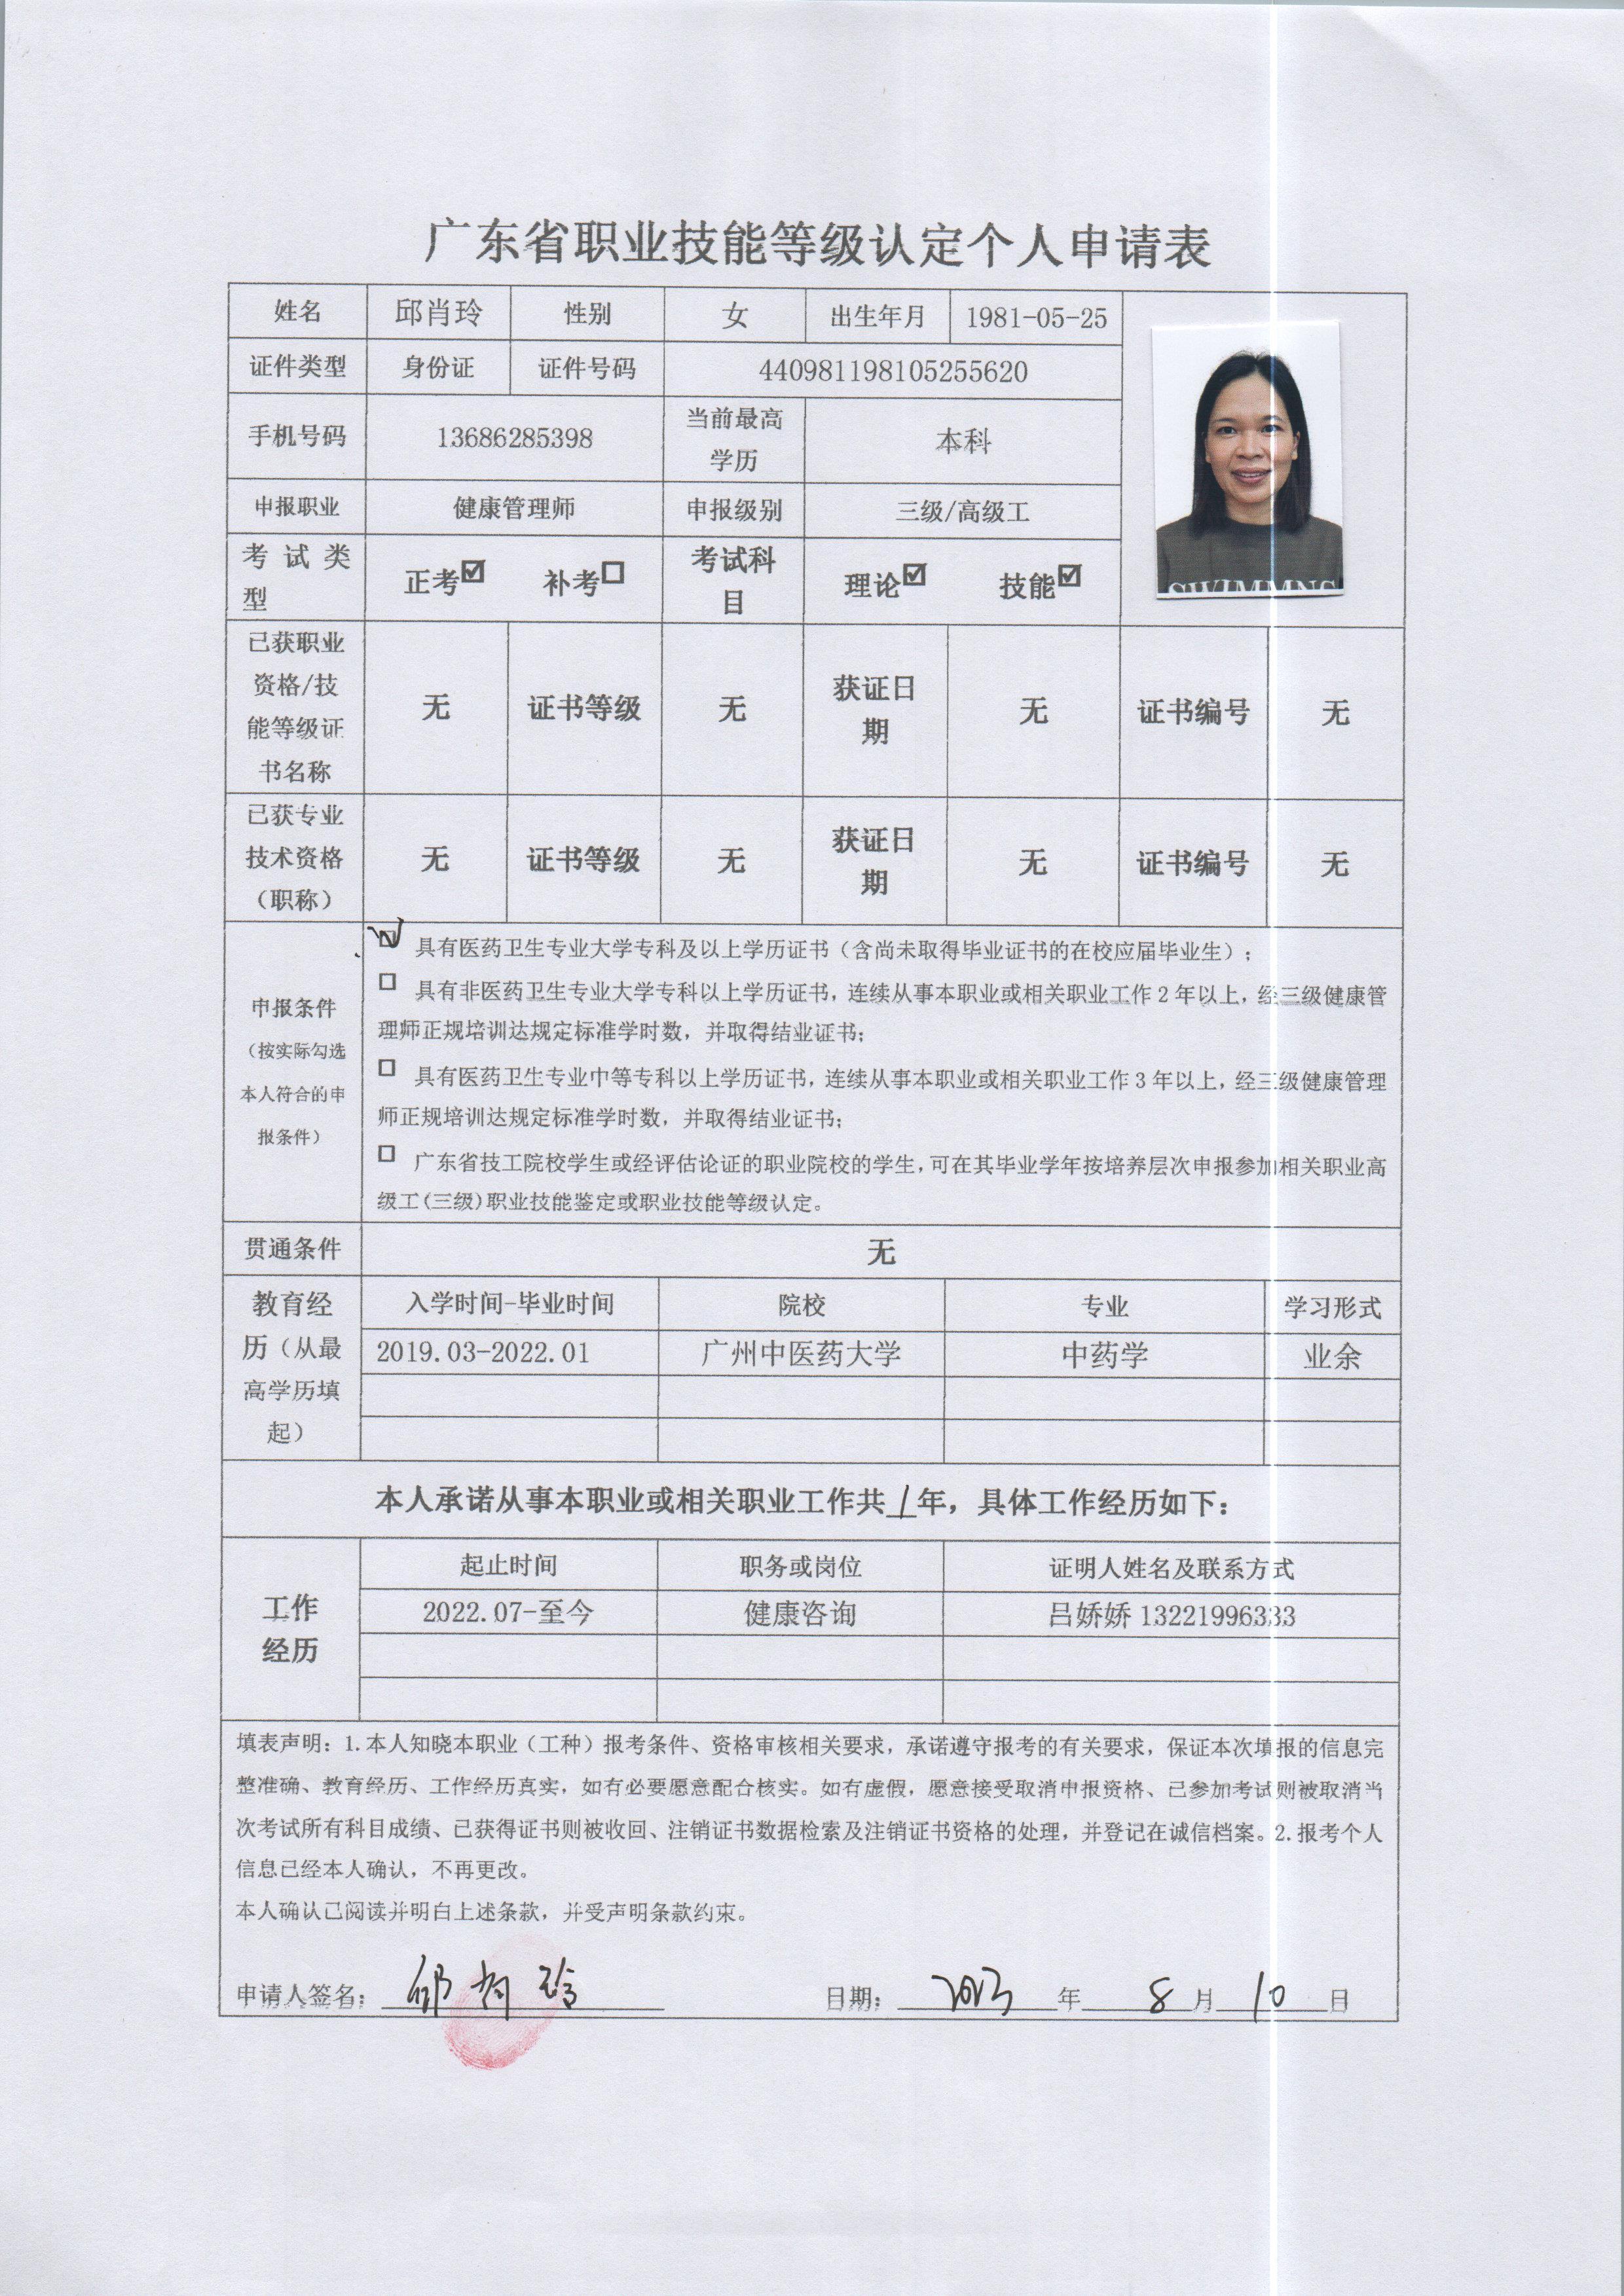 广东省职业技能等级认定个人申请表
姓名 邱肖玲 性别 女 出生年月 1981-05-25
证件类型 身份证 证件号码 440981198105255620
手机号码 13686285398 当前最高学历 本科
申报职业 健康管理师 申报级别 三级/高级工
考试类型 正考☑ 补考☐ 考试科目 理论☑ 技能☑
SWIMMNG
已获职业资格/技能等级证书名称 无 证书等级 无 获证日期 无 证书编号 无
已获专业技术资格（职称） 无 证书等级 无 获证日期 无 证书编号 无
申报条件（按实际勾选本人符合的申报条件）
☑ 具有医药卫生专业大学专科及以上学历证书（含尚未取得毕业证书的在校应届毕业生）；
☐ 具有非医药卫生专业大学专科以上学历证书，连续从事本职业或相关职业工作2年以上，经三级健康管
理师正规培训达规定标准学时数，并取得结业证书；
☐ 具有医药卫生专业中等专科以上学历证书，连续从事本职业或相关职业工作3年以上，经三级健康管理
师正规培训达规定标准学时数，并取得结业证书；
☐ 广东省技工院校学生或经评估论证的职业院校的学生，可在其毕业学年按培养层次申报参加相关职业高
级工(三级)职业技能鉴定或职业技能等级认定。
贯通条件 无
教育经历（从最高学历填起）
入学时间-毕业时间 院校 专业 学习形式
2019.03-2022.01 广州中医药大学 中药学 业余
本人承诺从事本职业或相关职业工作共1年，具体工作经历如下：
工作经历
起止时间 职务或岗位 证明人姓名及联系方式
2022.07-至今 健康咨询 吕娇娇 13221996333
填表声明：1.本人知晓本职业（工种）报考条件、资格审核相关要求，承诺遵守报考的有关要求，保证本次填报的信息完
整准确、教育经历、工作经历真实，如有必要愿意配合核实。如有虚假，愿意接受取消申报资格、已参加考试则被取消当
次考试所有科目成绩、已获得证书则被收回、注销证书数据检索及注销证书资格的处理，并登记在诚信档案。2.报考个人
信息已经本人确认，不再更改。
本人确认已阅读并明白上述条款，并受声明条款约束。
申请人签名：邱肖玲 日期：2023年8月10日